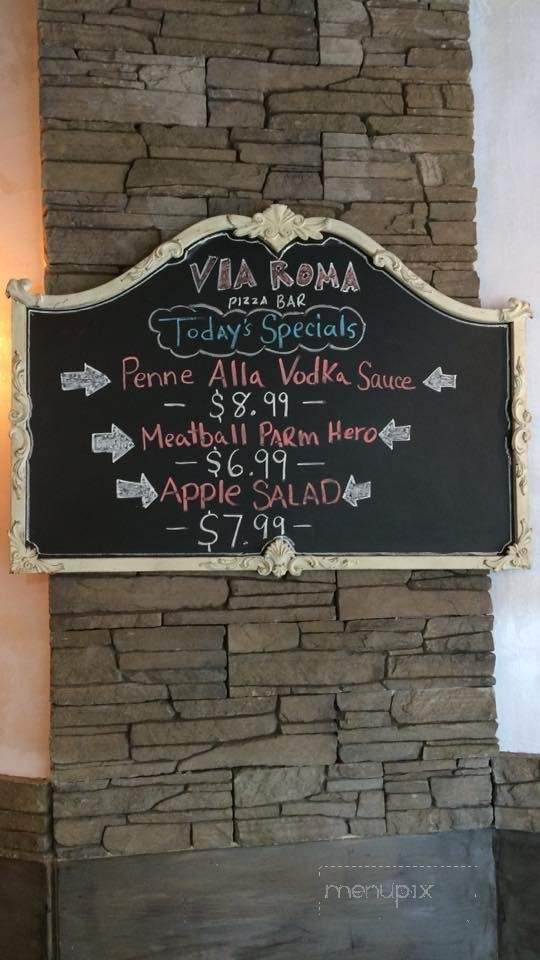 VIA ROMA
PIZZA BAR
Today's Specials
Penne Alla Vodka Sauce
- $8.99 -
Meatball PARM Hero
- $6.99 -
Apple SALAD
- $7.99 -
menupix